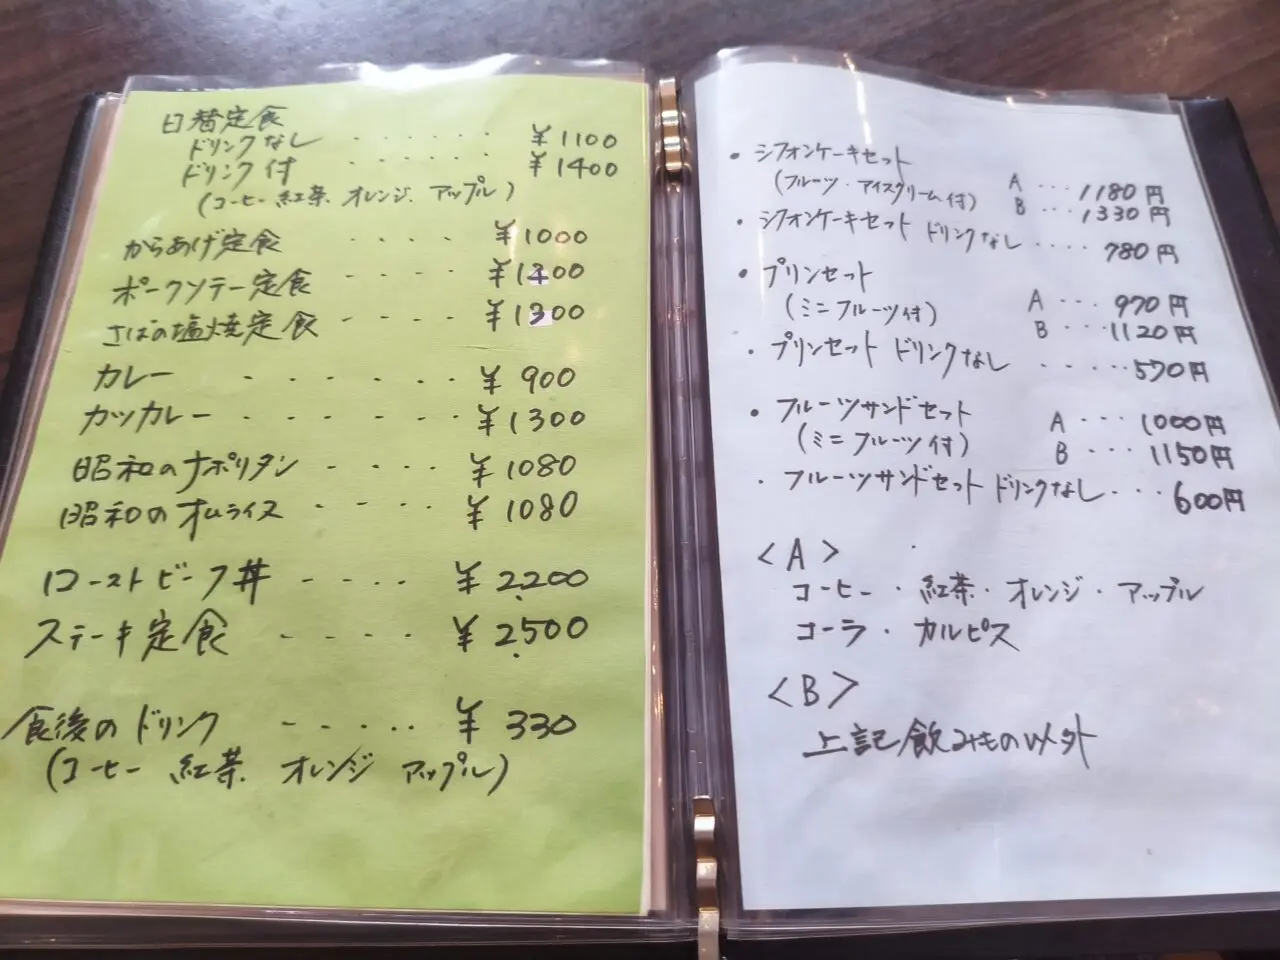 日替定食
ドリンクなし ・・・・・・ ¥1100
ドリンク付 ・・・・・・ ¥1400
(コーヒー 紅茶. オレンジ. アップル)
からあげ定食 ・・・・ ¥1000
ポークソテー定食 ・・・・ ¥1400
さばの塩焼定食 ・・・・ ¥1300
カレー ・・・・・・ ¥900
カツカレー ・・・・・・ ¥1300
昭和のナポリタン ・・・・ ¥1080
昭和のオムライス ・・・・ ¥1080
ローストビーフ丼 ・・・・ ¥2,200
ステーキ定食 ・・・・ ¥2,500
食後のドリンク ・・・・・ ¥330
(コーヒー 紅茶. オレンジ アップル)
・シフォンケーキセット
(フルーツ・アイスクリーム付) A ・・・ 1180円
B ・・・ 1330円
・シフォンケーキセット ドリンクなし ・・・・ 780円
・プリンセット
(ミニフルーツ付) A ・・・ 970円
B ・・・ 1120円
・プリンセット ドリンクなし ・・・・・ 570円
・フルーツサンドセット
(ミニフルーツ付) A ・・・ 1000円
B ・・・ 1150円
・フルーツサンドセット ドリンクなし ・・・ 600円
<A>
コーヒー・紅茶・オレンジ・アップル
コーラ・カルピス
<B>
上記飲みもの以外